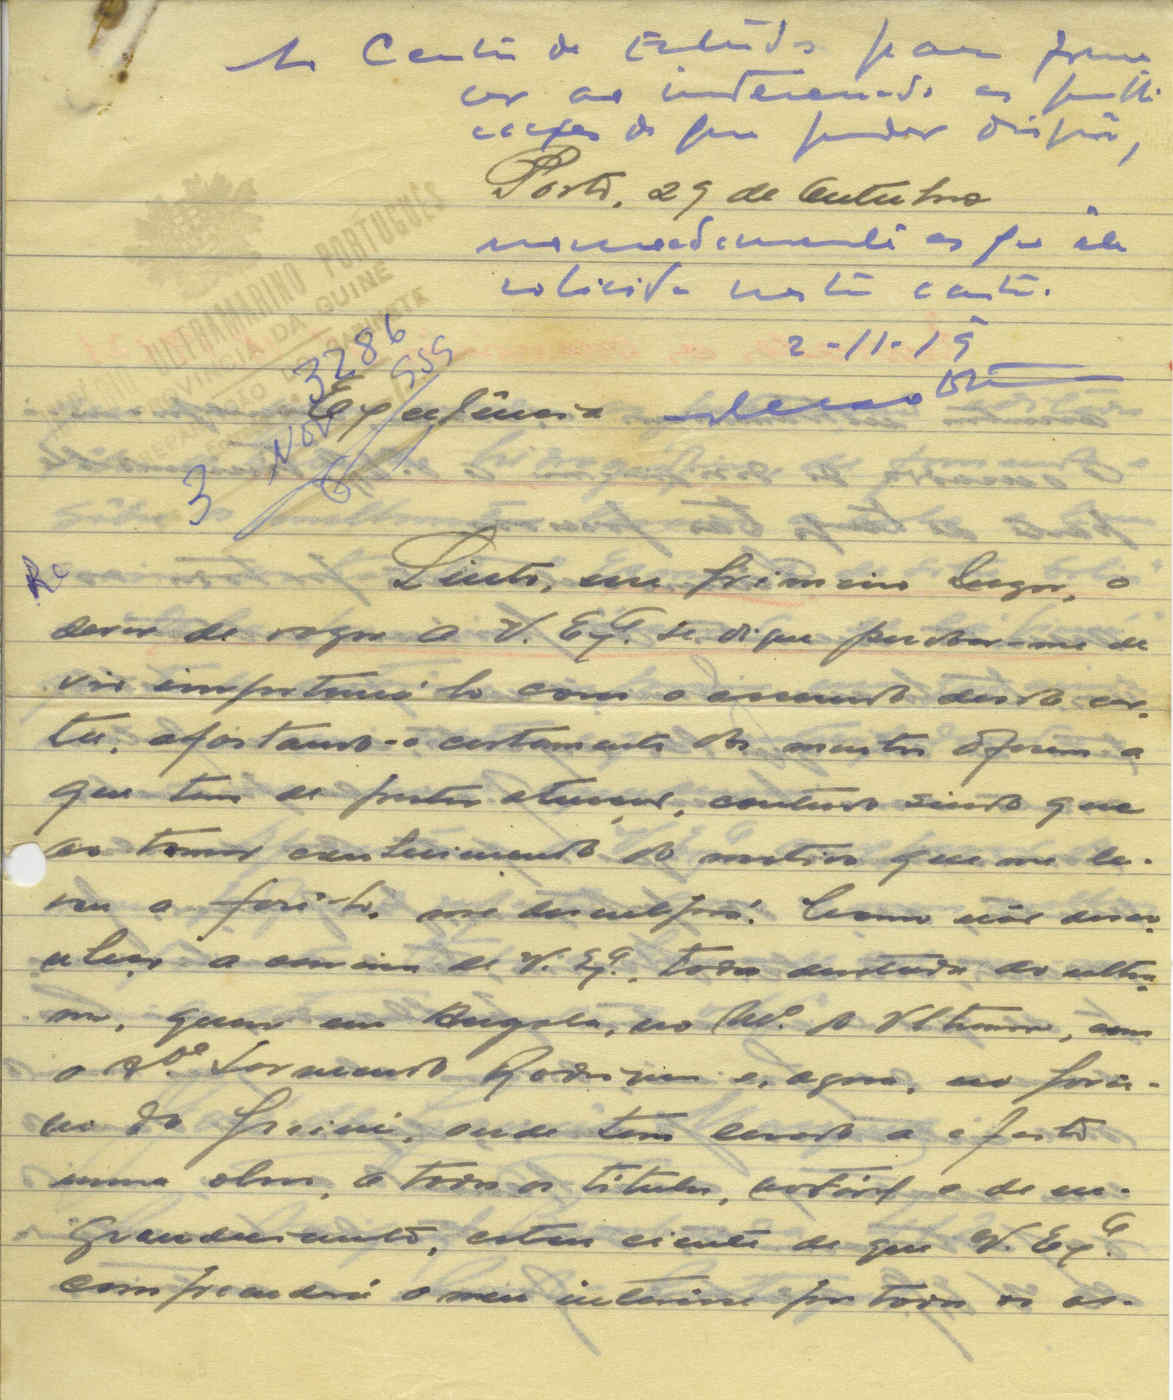 Ao Centro de Estudos para forne
cer ao interessado as publi
cações de que puder dispôr,
Porto, 29 de Outubro
nomeadamente as que êle
solicita nesta carta.
2-11-19
DOMÍNIO ULTRAMARINO PORTUGUÊS
PROVÍNCIA DA GUINÉ
3286
3 NOV 959
Excelência
Rc
Sinto, em primeiro lugar, o
dever de rogar a V. Exª. se digne perdoar-me de
vir importuná-lo com o assunto desta car-
ta, afastando-o certamente dos muitos afazeres a
que tem de prestar atenção, contudo sinto que
ao tomar conhecimento do motivo que me le-
vou a fazê-lo, me desculpará. Como não desco-
nheço a carreira de V. Exª., toda devotada ao ultra-
mar, quer em Angola, no Mº. do Ultramar, com
o Sarmento Rodrigues e, agora, no Govêr-
no da Guiné, onde tem levado a efeito
uma obra, a todos os títulos, notável e de en-
grandecimento, estou ciente de que V. Exª.
compreenderá o meu interêsse por todos os as-